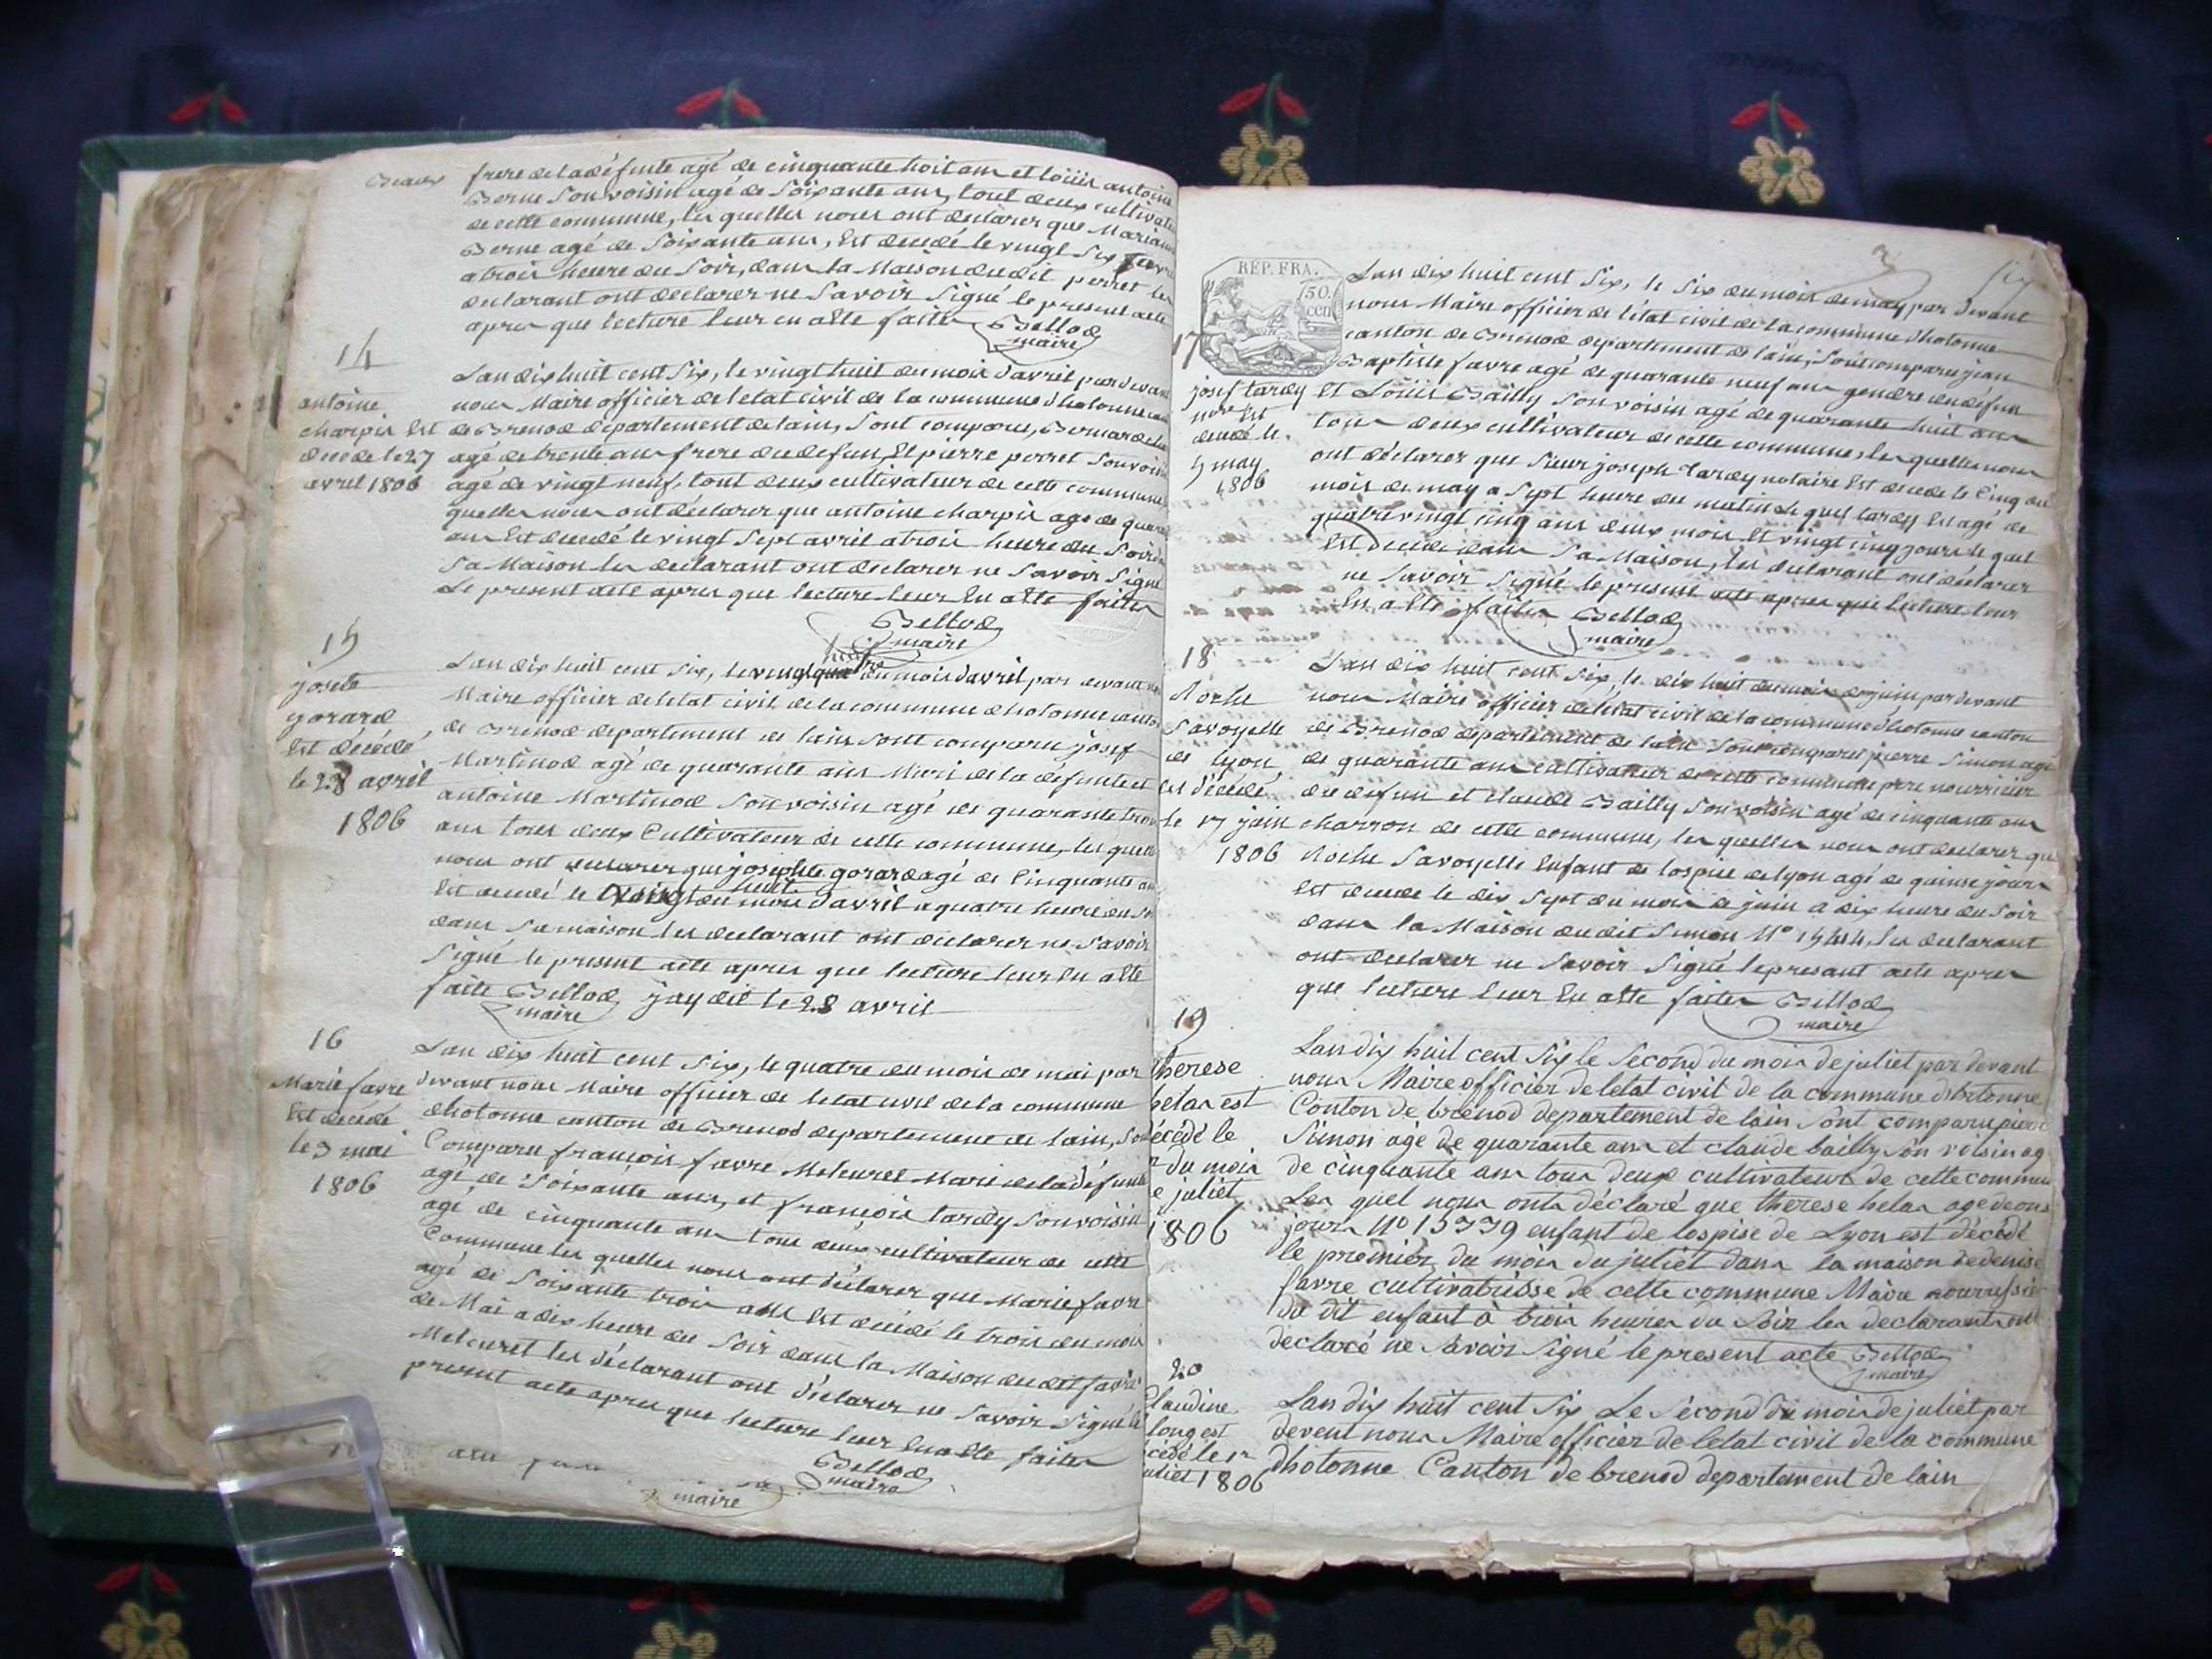 frere de la défunte agé de cinquante huit ans et loüis antoine
Berne Son voisin agé de Soixante ans, tout deux cultivate
de cette commune, les quelles nous ont declarer que Mariane
Berne agé de Soixante ans, Est decedé le vingt Six
atrois heure du Soir, dans la Maison dudit perret les
declarant ont declarer ne Savoir Signé le present acte
apres que lecture leur en atte faites Bellod
maire
14
antoine
charpis Est
decede le 27
avril 1806
Lan dix huit cent Six, le vingt huit du mois d'avril par devant
nous Maire officier de letat civil de la commune dhotonne
de Brenod departement de lain, Sont comparu, Bernard
agé de trente ans frere du defun, Et pierre perret Son voisin
agé de vingt neuf, tout deux cultivateur de cette commune
quelles nous ont déclarer que antoine charpis age de
ans Est decedé le vingt Sept avril atrois heure du Soir
Sa Maison les declarant ont declarer ne Savoir Signe
Le present acte apres que lecture leur En atte faites
Bellod
maire
15
josete
gorard
Est decedé
le 28 avril
1806
Lan dix huit cent Six, le vingt huit du mois d'avril par devant
Maire officier de letat civil de la commune dhotonne
de Brenod departement de lain Sont comparu josef
Martinod agé de quarante ans Mari de la defunte et
antoine Martinod Son voisin agé de quarante trois
ans tous deux Cultivateur de cette commune, les quelles
nous ont declarer que josephte gorard agé de Cinquante
Est decedé le vingt huit du mois d'avril a quatre heure du
dans Sa maison les declarant ont declarer ne Savoir
Signé le present acte apres que lecture leur En atte
faite Bellod jay dit le 28 avril
maire
16
Marie favre
Est decedé
le 3 mai
1806
Lan dix huit cent Six, le quatre du mois de mai par
devant nous Maire officier de letat civil de la commune
dhotonne canton de Brenod departement de lain, Sont
Comparu françois favre Meleuret Mari de la défunte
agé de Soixante ans, et françois tardy Son voisin
agé de cinquante ans tous deux cultivateur de cette
Commune les quelles nous ont déclarer que Marie favre
agé de Soixante trois ans Est decedé le trois du mois
de Mai a dix heure du Soir dans la Maison dudit favre
Meleuret les déclarant ont déclarer ne Savoir Signé le
present acte apres que lecture leur En atte faites
Bellod
maire
maire
3
Six
RÉP. FRA.
50.
cen
17
josef tardy
nore Est
decedé le
5 may
1806
Lan dix huit cent Six, le Six du mois de may par devant
nous Maire officier de létat civil de la commune dhotonne
canton de Brenod departement de lain, Sont comparu jean
Baptiste favre agé de quarante neuf ans gendre du defun
Et Loüis Bailly Son voisin agé de quarante huit ans
tous deux cultivateur de cette commune, les quelles nous
ont déclarer que Sieur joseph tardy notaire Est decede le Cinq du
mois de may a Sept heure du matin Le quel tardy Est agé de
quatre vingt cinq ans deux mois Et vingt cinq jours le quel
Est decede dans Sa Maison, les declarant ont déclarer
ne Savoir Signé le present acte apres que lecture leur
En atte faites Bellod
maire
18
Roche
Savoyelle
de lyon
est décédé
le 17 juin
1806
Lan dix huit cent Six, le dix huit du mois de juin par devant
nous Maire officier de létat civil de la commune dhotonne canton
de Brenod departement de lain Sont comparu pierre Simon agé
de quarante ans cultivateur de cette commune pere nourricier
du defun et claude Bailly Son voisin agé de cinquante ans
charron de cette commune, les quelles nous ont declarer que
Roche Savoyelle Enfant de lospice de lyon agé de quinse jours
Est decede le dix Sept du mois de juin a dix heure du Soir
dans la Maison dudit Simon No 1544, Les declarant
ont declarer ne Savoir Signé le presant acte apres
que lecture leur En atte faites Bellod
maire
19
therese
helas est
écédé le
du mois
e juliet
1806
Lan dix huit cent Six le Second du mois de juliet par devant
nous Maire officier de letat civil de la commune dhotonne
Canton de brenod departement de lain Sont comparu pierre
Simon agé de quarante ans et claude bailly Son voisin ag
de cinquante ans tous deux cultivateur de cette commun
Les quel nous onts déclaré que therese helas age de ons
jours No 15339 enfant de lospise de Lyon est décedé
le premier du mois du juliet dans la maison de denise
favre cultivatrisse de cette commune Maire nourrissier
du dit enfant à trois heures du Soir les declarant ont
declaré ne Savoir Signé le present acte Bellod
maire
20
Claudine
long est
cédé le 1r
uliet 1806
Lan dix huit cent Six Le Second du mois de juliet par
devent nous Maire officier de letat civil de la commune
dhotonne Canton de brenod departement de lain